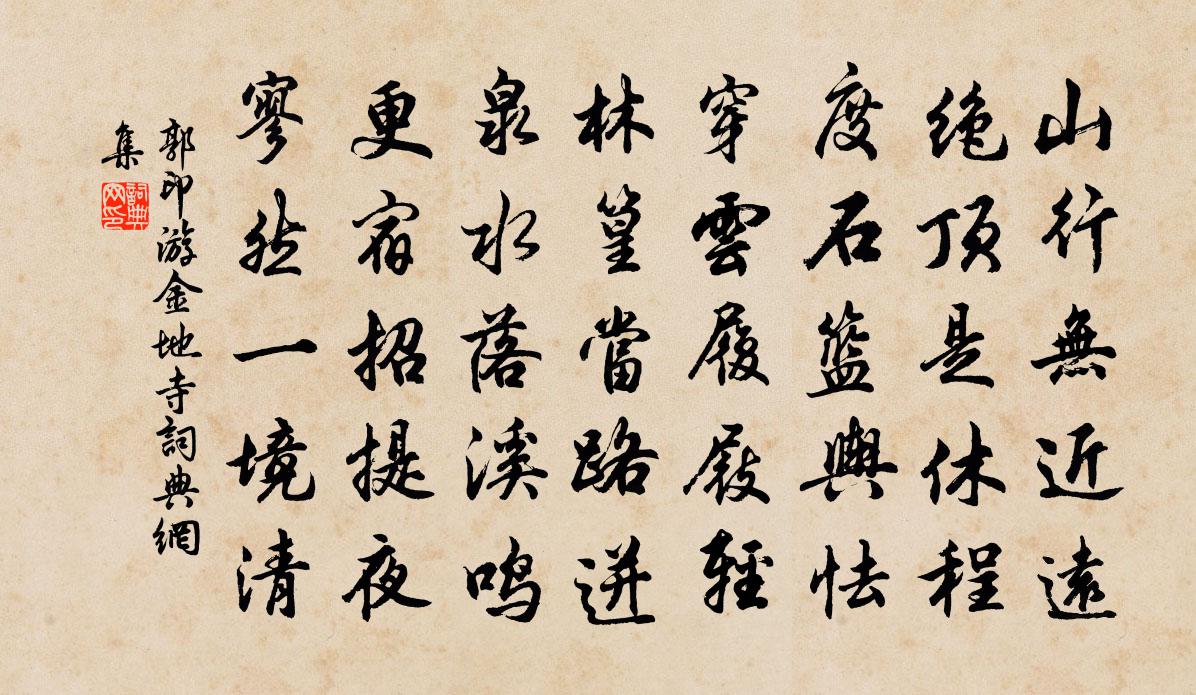 山行無近遠
絶頂是休程
度石籃輿怯
穿雲履屐輕
林篁當路迸
泉水落溪鳴
更宿招提夜
寥然一境清
郭印游金地寺詞典網
集
詞典网印